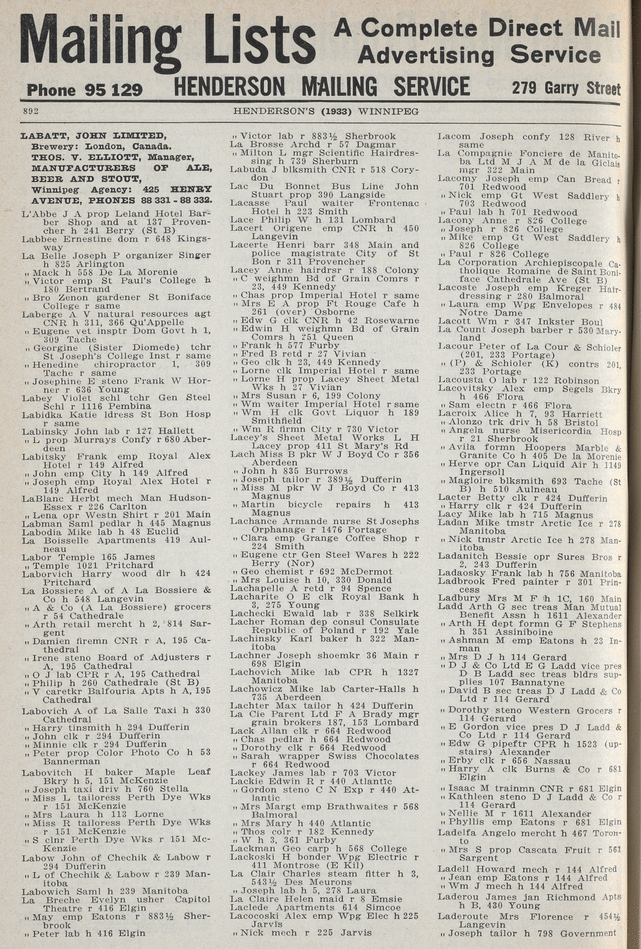 Mailing Lists
A Complete Direct Mail
Advertising Service
Phone 95 129 HENDERSON MAILING SERVICE 279 Garry Street
892 HENDERSON'S (1933) WINNIPEG
LABATT, JOHN LIMITED,
Brewery: London, Canada.
THOS. V. ELLIOTT, Manager,
MANUFACTURERS OF ALE,
BEER AND STOUT,
Winnipeg Agency: 425 HENRY
AVENUE, PHONES 88 331 - 88 332.
L'Abbe J A prop Leland Hotel Bar-
ber Shop and at 137 Proven-
cher h 241 Berry (St B)
Labbee Ernestine dom r 648 Kings-
way
La Belle Joseph P organizer Singer
h 825 Arlington
" Mack h 558 De La Morenie
" Victor emp St Paul's College h
180 Bertrand
" Bro Zenon gardener St Boniface
College r same
Laberge A V natural resources agt
CNR h 311, 366 Qu'Appelle
" Eugene vet inptr Dom Govt h 1,
309 Tache
" Georgine (Sister Diomede) tchr
St Joseph's College Inst r same
" Henedine chiropractor 1, 309
Tache r same
" Josephine E steno Frank W Hor-
ner r 636 Young
Labey Violet schl tchr Gen Steel
Schl r 1116 Pembina
Labidka Katie ldress St Bon Hosp
r same
Labinsky John lab r 127 Hallett
" L prop Murrays Confy r 680 Aber-
deen
Labitsky Frank emp Royal Alex
Hotel r 149 Alfred
" John emp City h 149 Alfred
" Joseph emp Royal Alex Hotel r
149 Alfred
LaBlanc Herbt mech Man Hudson-
Essex r 226 Carlton
" Lena opr Westn Shirt r 201 Main
Labman Saml pedlar h 445 Magnus
Labodia Mike lab h 48 Euclid
La Boisselle Apartments 419 Aul-
neau
Labor Temple 165 James
" Temple 1021 Pritchard
Laborvich Harry wood dlr h 424
Pritchard
La Bossiere A of A La Bossiere &
Co h 548 Langevin
" A & Co (A La Bossiere) grocers
r 54 Cathedrale
" Arth retail mercht h 2, 814 Sar-
gent
" Damien firemn CNR r A, 195 Ca-
thedral
" Irene steno Board of Adjusters r
A, 195 Cathedral
" O J lab CPR r A, 195 Cathedral
" Philip h 260 Cathedrale (St B)
" V caretkr Balfouria Apts h A, 195
Cathedral
Labovich A of La Salle Taxi h 330
Cathedral
" Harry tinsmith h 294 Dufferin
" John clk r 294 Dufferin
" Minnie clk r 294 Dufferin
" Peter prop Color Photo Co h 53
Bannerman
Labovitch H baker Maple Leaf
Bkry h 5, 151 McKenzie
" Joseph taxi driv h 760 Stella
" Miss L tailoress Perth Dye Wks
r 151 McKenzie
" Mrs Laura h 113 Lorne
" Miss R tailoress Perth Dye Wks
r 151 McKenzie
" S clnr Perth Dye Wks r 151 Mc-
Kenzie
Labow John of Chechik & Labow r
294 Dufferin
" L of Chechik & Labow r 239 Man-
itoba
Labowich Saml h 239 Manitoba
La Breche Evelyn usher Capitol
Theatre r 416 Elgin
" May emp Eatons r 883½ Sher-
brook
" Peter lab h 416 Elgin
" Victor lab r 883½ Sherbrook
La Brosse Archd r 57 Dagmar
" Milton L mgr Scientific Hairdres-
sing h 739 Sherburn
Labuda J blksmith CNR r 518 Cory-
don
Lac Du Bonnet Bus Line John
Stuart prop 390 Langside
Lacasse Paul waiter Frontenac
Hotel h 223 Smith
Lace Philip W h 131 Lombard
Lacert Origene emp CNR h 450
Langevin
Lacerte Henri barr 348 Main and
police magistrate City of St
Bon r 311 Provencher
Lacey Anne hairdrsr r 188 Colony
" C weighmn Bd of Grain Comrs r
23, 449 Kennedy
" Chas prop Imperial Hotel r same
" Mrs E A prop Pt Rouge Cafe h
261 (over) Osborne
" Edw G clk CNR h 42 Rosewarne
" Edwin H weighmn Bd of Grain
Comrs h 251 Queen
" Frank h 577 Furby
" Fred B retd r 27 Vivian
" Geo clk h 23, 449 Kennedy
" Lorne clk Imperial Hotel r same
" Lorne H prop Lacey Sheet Metal
Wks h 27 Vivian
" Mrs Susan r 6, 199 Colony
" Wm waiter Imperial Hotel r same
" Wm H clk Govt Liquor h 189
Smithfield
" Wm R firmn City r 730 Victor
Lacey's Sheet Metal Works L H
Lacey prop 411 St Mary's Rd
Lach Miss B pkr W J Boyd Co r 356
Aberdeen
" John h 835 Burrows
" Joseph tailor r 389½ Dufferin
" Miss M pkr W J Boyd Co r 413
Magnus
" Martin bicycle repairs h 413
Magnus
Lachance Armande nurse St Josephs
Orphanage r 1476 Portage
" Clara emp Grange Coffee Shop r
224 Smith
" Eugene ctr Gen Steel Wares h 222
Berry (Nor)
" Geo chemist r 692 McDermot
" Mrs Louise h 10, 330 Donald
Lachapelle A retd r 94 Spence
Lacharite O E clk Royal Bank h
3, 275 Young
Lachecki Ewald lab r 338 Selkirk
Lacher Roman dep consul Consulate
Republic of Poland r 192 Yale
Lachinsky Karl baker h 322 Man-
itoba
Lachner Joseph shoemkr 36 Main r
698 Elgin
Lachovich Mike lab CPR h 1327
Manitoba
Lachowicz Mike lab Carter-Halls h
735 Aberdeen
Lachter Max tailor h 424 Dufferin
La Cie Parent Ltd F A Brady mgr
grain brokers 187, 153 Lombard
Lack Allan clk r 664 Redwood
" Chas pedlar h 664 Redwood
" Dorothy clk r 664 Redwood
" Sarah wrapper Swiss Chocolates
r 664 Redwood
Lackey James lab r 703 Victor
Lackie Edwin R r 440 Atlantic
" Gordon steno C N Exp r 440 At-
lantic
" Mrs Margt emp Brathwaites r 568
Balmoral
" Mrs Mary h 440 Atlantic
" Thos colr r 182 Kennedy
" W h 3, 361 Furby
Lackman Geo carp h 568 College
Lackoski H bonder Wpg Electric r
411 Montrose (E Kil)
La Clair Charles steam fitter h 3,
543½ Des Meurons
" Joseph lab h 5, 278 Laura
La Claire Helen maid r 8 Emsie
Laclede Apartments 614 Simcoe
Lacocoski Alex emp Wpg Elec h 225
Jarvis
" Nick mech r 225 Jarvis
Lacom Joseph confy 128 River h
same
La Compagnie Fonciere de Manito-
ba Ltd M J A M de la Giclais
mgr 322 Main
Lacomy Joseph emp Can Bread r
701 Redwood
" Nick emp Gt West Saddlery h
703 Redwood
" Paul lab h 701 Redwood
Lacony Anne r 826 College
" Joseph r 826 College
" Mike emp Gt West Saddlery h
826 College
" Paul r 826 College
La Corporation Archiepiscopale Ca-
tholique Romaine de Saint Boni-
face Cathedrale Ave (St B)
Lacoste Joseph emp Kreger Hair-
dressing r 280 Balmoral
" Laura emp Wpg Envelopes r 484
Notre Dame
Lacott Wm r 347 Inkster Boul
La Count Joseph barber r 530 Mary-
land
Lacour Peter of La Cour & Schioler
(201, 233 Portage)
" (P) & Schioler (K) contrs 201,
233 Portage
Lacousta O lab r 122 Robinson
Lacovitsky Alex emp Segels Bkry
h 466 Flora
" Sam electn r 466 Flora
Lacroix Alice h 7, 93 Harriett
" Alonzo trk driv h 58 Bristol
" Angela nurse Misericordia Hosp
r 21 Sherbrook
" Avila formn Hoopers Marble &
Granite Co h 405 De la Morenie
" Herve opr Can Liquid Air h 1149
Ingersoll
" Magloire blksmith 693 Tache (St
B) h 510 Aulneau
Lacter Betty clk r 424 Dufferin
" Harry clk r 424 Dufferin
Lacy Mike lab h 715 Magnus
Ladan Mike tmstr Arctic Ice r 278
Manitoba
" Nick tmstr Arctic Ice h 278 Man-
itoba
Ladanitch Bessie opr Sures Bros r
2, 243 Dufferin
Ladaosky Frank lab h 756 Manitoba
Ladbrook Fred painter r 301 Prin-
cess
Ladbury Mrs M F h 1C, 160 Main
Ladd Arth G sec treas Man Mutual
Benefit Assn h 1611 Alexander
" Arth H dept formn G F Stephens
h 351 Assiniboine
" Ashman M emp Eatons h 23 In-
man
" Mrs D J h 114 Gerard
" D J & Co Ltd E G Ladd vice pres
D B Ladd sec treas bldrs sup-
plies 107 Bannatyne
" David B sec treas D J Ladd & Co
Ltd r 114 Gerard
" Dorothy steno Western Grocers r
114 Gerard
" E Gordon vice pres D J Ladd &
Co Ltd r 114 Gerard
" Edw G pipeftr CPR h 1523 (up-
stairs) Alexander
" Erby clk r 656 Nassau
" Harry A clk Burns & Co r 681
Elgin
" Isaac M trainmn CNR r 681 Elgin
" Kathleen steno D J Ladd & Co r
114 Gerard
" Nellie M r 1611 Alexander
" Phyllis emp Eatons r 681 Elgin
Ladelfa Angelo mercht h 467 Toron-
to
" Mrs S prop Cascata Fruit r 561
Sargent
Ladell Howard mech r 144 Alfred
" Jean emp Eatons r 144 Alfred
" Wm J mech h 144 Alfred
Laderou James jan Richmond Apts
h B, 430 Young
Laderoute Mrs Florence r 454½
Langevin
" Joseph tailor h 798 Government